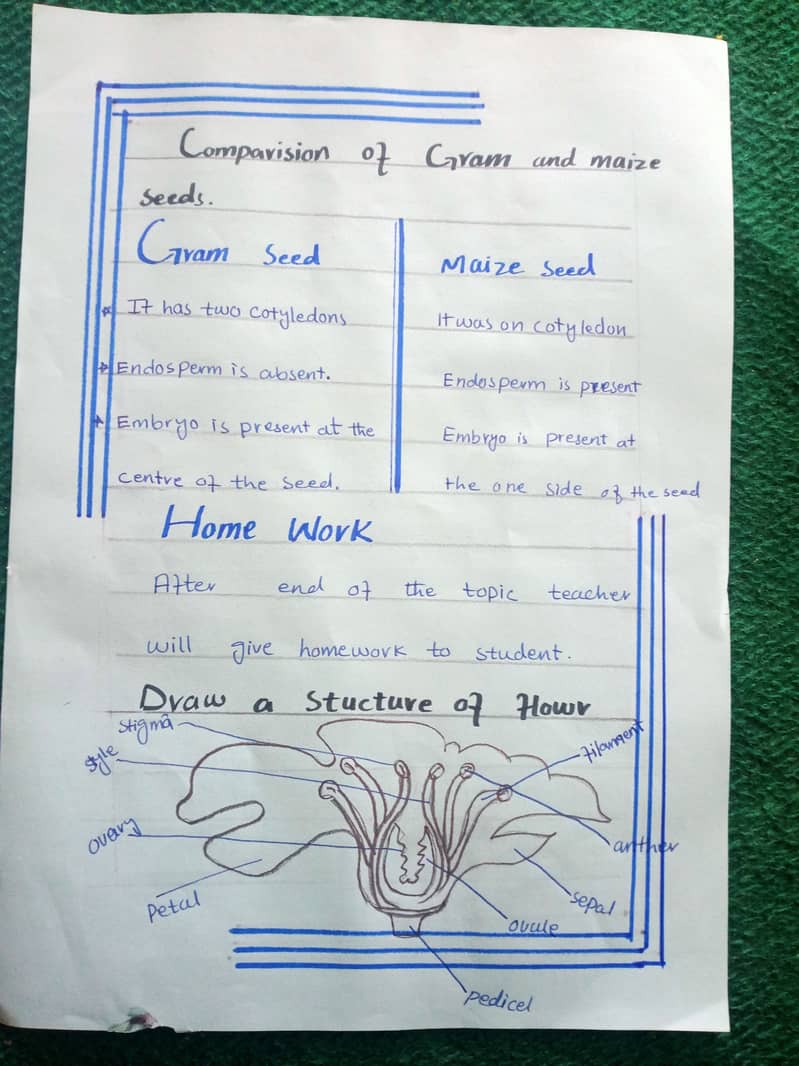 Comparision of Gram and maize
seeds.
Gram Seed
It has two cotyledons
Endosperm is absent.
Embryo is present at the
centre of the seed.
Maize Seed
It was on cotyledon
Endosperm is present
Embryo is present at
the one side of the seed
Home Work
After end of the topic teacher
will give homework to student.
Draw a Stucture of Flowr
stigma
style
ovary
Petal
filament
anther
sepal
ovule
pedicel